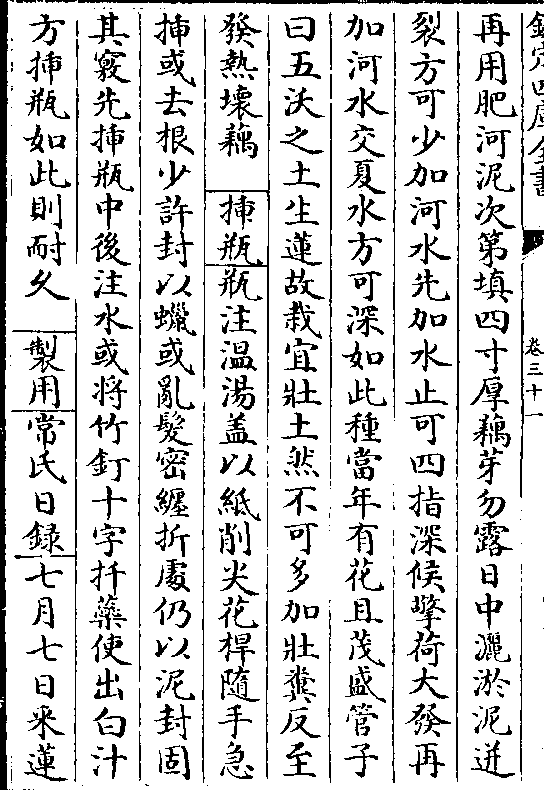 欽定四庫全書
卷三十一
再用肥河泥次第填四寸厚藕芽勿露日中灑淤泥迸
裂方可少加河水先加水止可四指深候擎荷大發再
加河水交夏水方可深如此種當年有花且茂盛管子
曰五沃之土生蓮故栽宜壯土然不可多加壯糞反至
發熱壞藕 挿瓶瓶注温湯盖以紙削尖花桿隨手急
挿或去根少許封以蠟或亂髮密纒折處仍以泥封固
其竅先挿瓶中後注水或將竹釘十字扦蘂使出白汁
方挿瓶如此則耐久 製用常氏日録七月七日采蓮